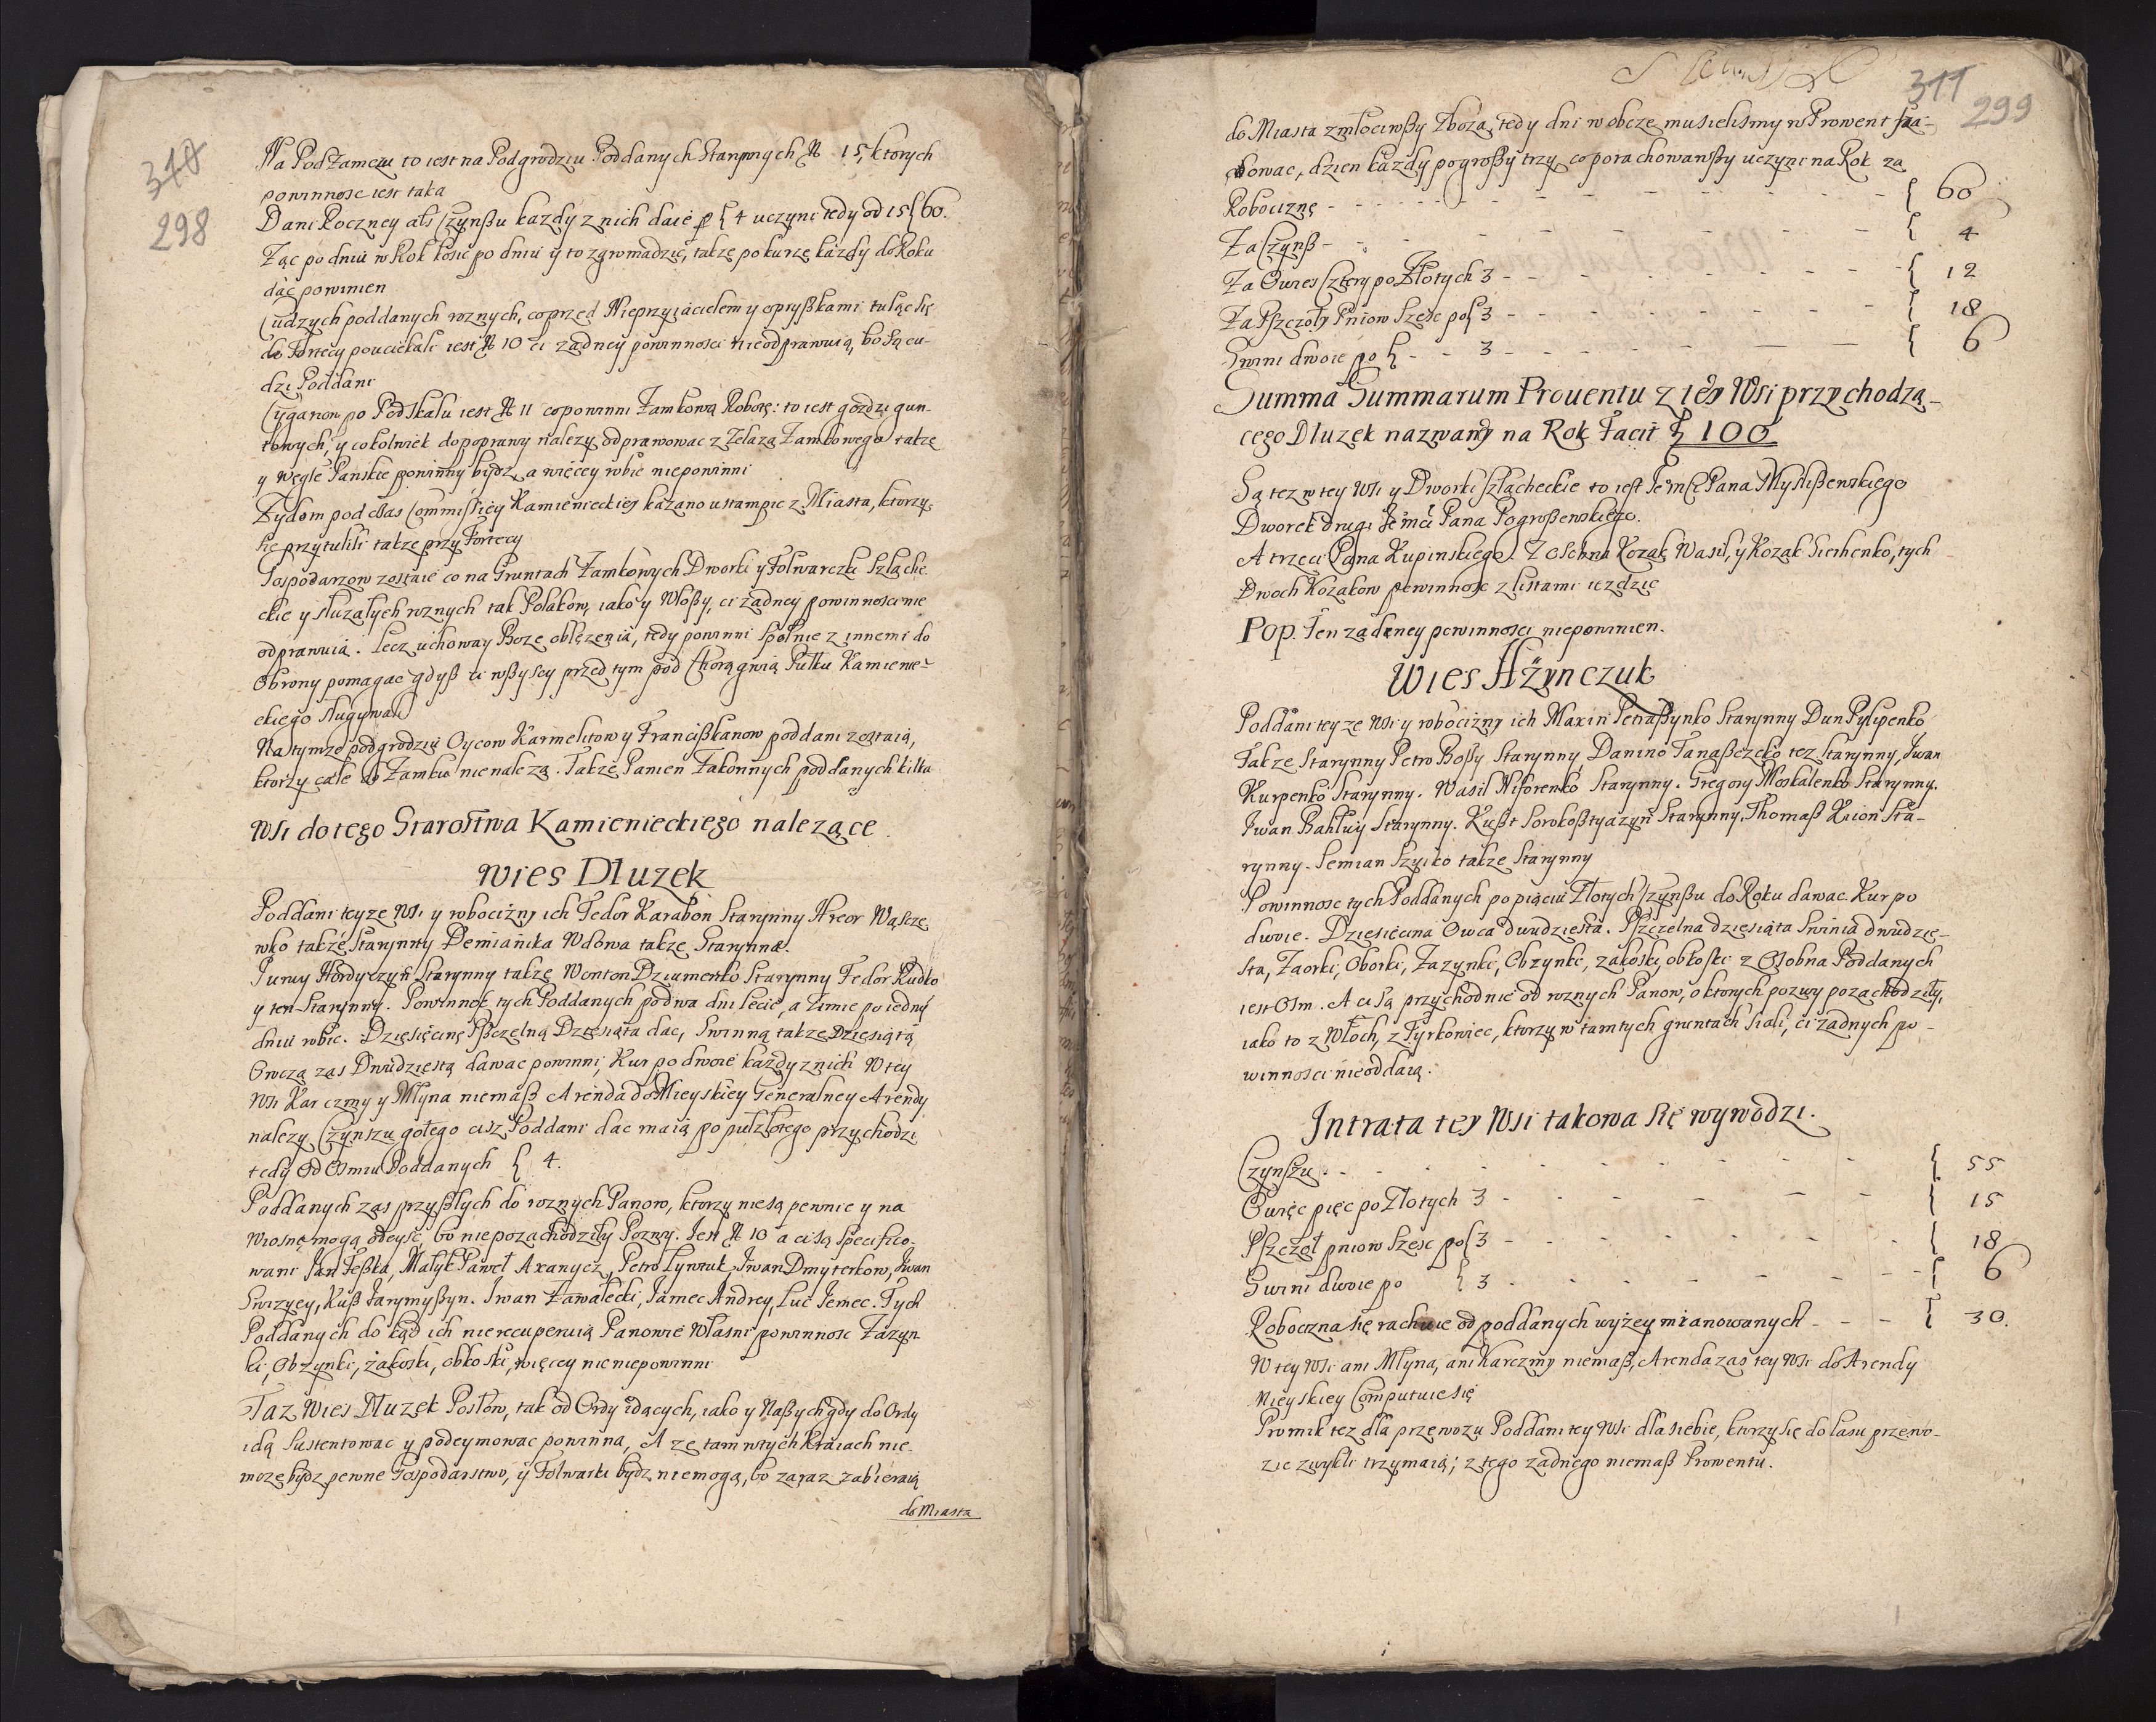 310
298
Na Podzamczu to iest na Podgrodziu Poddanych Starynnych № 15, ktorych
powinnosc iest taka
Dani Roczney als Czynßu kazdy z nich daie p ʒ 4 uczyni tedy od 15 ʒ 60.
Ząc po dniu w Rok kosic po dniu y to zgromadzic, takze po kurze kazdy do Roku
dac powinien
Cudzych poddanych roznych, co przed Nieprzyiacielem y opryßkami tuląc się
do Fortecy pouciekali iest № 10 ci zadney powinnosci nieodprawuią, bo są cu-
dzi Poddani
Cyganow po Podskalu iest № 11 co powinni Zamkową Robotę: to iest gozdzi gun-
towych, y cokolwiek do poprawy nalezy odprawowac z Zelaza Zamkowego takze
y węgle Panskie powinny bydz a więcey robic niepowinni
Zydom pod czas Commissiey Kamienieckiey kazano ustampic z Miasta, ktorzy
się przytulili takze przy Fortecy
Gospodarzow zostaie co na Gruntach Zamkowych Dworki y Folwarczki Szlache-
ckie y służałych roznych tak Polakow, iako y Włoßy, ci zadney powinnosci nie
odprawuią. Lecz uchoway Boze oblęzenia, tedy powinni społnie z innemi do
Obrony pomagac gdyß ci wßyscy przed tym pod Chorągwią Pułku Kamienie-
ckiego sługiwali
Na tymze podgrodziu Oycow Karmelitow y Francißkanow poddani zostaią,
ktorzy cale do Zamku nienalezą. Takze Panien Zakonnych poddanych kilka
Wsi do tego Starostwa Kamienieckiego nalezące.
Wies Dluzek
Poddani teyze Wsi y robocizny ich Fedor Karabon Starynny Hreor Wąscze
wko takze Starynny Demianika Wdowa takze Starynna.
Jurwy Hordyczyn Starynny takze Wonton Dziumenko Starynny Fedor Rudko
y ten Starynny. Powinnosc tych Poddanych po dwa dni lecie, a Zimie po iedny
dniu robic. Dzięsięcinę Pßczelną Dziesiąta dac, Swinną takze Dziesiątą
Owczą zas Dwudziestą dawac powinni, Kur po dwoie każdy z nich W tey
Wsi Karczmy y Młyna niemaß Arenda do Mieyskiey Generalney Arendy
nalezy Czynszu gołego ciż Poddani dac maią po pułzłotego przychodzi
tedy od Osmiu Poddanych ʒ 4.
Poddanych zas przyßłych do roznych Panow, ktorzy niesą pewnie y na
wiosnę mogą odeysc, bo niepozachodziły Pozwy. Jest № 10 a ci są specifico-
wani Jan Feßka, Matyk Paweł Axanycz, Petro Lywruk, Iwan Dmyterkow, Iwan
Swizycy, Kuß Jarymyßyn. Iwan Zawalecki, Jamec Andrey, Luc Jemec. Tych
Poddanych do kąd ich nierecuperuią Panowie Własni powinnosc Zazyn
ki, Obzynki, zakoski, obkoski, więcey nic niepowinni
Taz Wies Dluzek Posłow, tak od Ordy idących, iako y Naßych gdy do Ordy
idą Sustentowac y podeymowac powinna, A ze tam w tych Kraiach nie-
moze bydz pewne Gospodarstwo, y Folwarki bydz niemogą, bo zaraz zabieraią
do Miasta
311
299
do Miasta zmłociwßy Zboza, tedy dni w obcze musielismy w Prowent sza-
cowac, dzien kazdy po großy trzy co porachowawßy uczyni na Rok za
Robociznę - - - ʒ 60
Za Czynß - - - ʒ 4
Za Owies Cztery po Złotych 3 - - - ʒ 12
Za Pszczoły Pniow Szesc po ʒ 3 - - - ʒ 18
Swini dwoie po ʒ - - 3 - - - ʒ 6
Summa Summarum Prouentu z tey Wsi przychodzą-
cego Dluzek nazwany na Rok Facit ʒ 100
Są tez w tey Wsi y Dworki szlacheckie to iest Jeºmci Pana Myslißewskiego
Dworek drugi Jeºmci Pana Pogroßewskiego.
A trzeci Pana Kupinskiego. Z osobna Kozak Wasil, y Kozak Sierhenko, tych
Dwoch Kozakow powinnosc z listami iezdzic
Pop. Ten zadney powinnosci niepowinien.
Wies Hżynczuk
Poddani teyze Wsi y robocizny ich Maxin Petraßynko Starynny Dun Pylipenko
Takze Starynny Petro Boßy Starynny, Danino Tanaßczeko tez starynny, Iwan
Kurpenko Starynny. Wasil Niforenko Starynny. Gregory Moskalenko Starynny.
Iwan Bahluiy Starynny. Kußt Sorokoßtyazyn Starynny, Thomaß Kiion Sta-
rynny. Semian Szyiko takze Starynny
Powinnosc tych Poddanych po pięciu Złotych Czynßu do Roku dawac. Kur po
dwoie. Dziesięcina Owca dwudziesta. Pszczelna dziesiąta Swinia dwudzie-
sta, Zaorki, Oborki, Zazynki, Obzynki, zakoski, obkoski z Osobna Poddanych
iest Osm. A ci są przychodnie od roznych Panow, o ktorych pozwy pozachodziły,
iako to z Włoch, z Tyrkowiec, ktorzy w tamtych gruntach siali, ci zadnych po-
winnosci nieoddaią.
Intrata tey Wsi takowa się wywodzi.
Czynszu - - - ʒ 55
Owięc pięc po Złotych 3 - - - ʒ 15
Pszczoł pniow Szesc po ʒ 3 - - - ʒ 18
Swini dwoie po ʒ 3 - - - ʒ 6
Robocizna się rachuie od poddanych wyżey mianowanych - - - ʒ 30.
W tey Wsi ani Młyna, ani Karczmy niemaß, Arenda zas tey Wsi do Arendy
Mieyskiey Computuie się
Promik tez dla przewozu Poddani tey Wsi dla siebie, ktorzy się do lasu przewo-
zic zwykli trzymaią; z tego zadnego niemaß Prowentu.